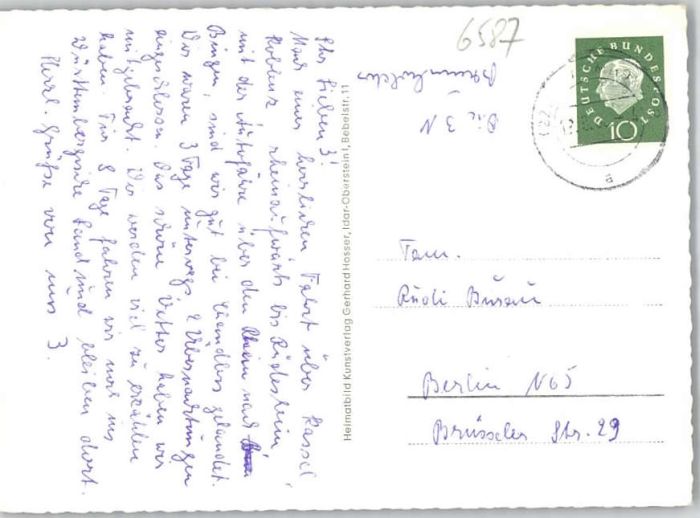 Ihr Lieben 3!
Nach einer herrlichen Fahrt über Kassel
Koblenz rheinaufwärts bis Rüdesheim
mit der Autofähre über den Rhein nach
Bingen, sind wir gut bei gelandet.
Wir waren 3 Tage unterwegs 2 Übernachtungen
eingeschlossen. Das schöne Wetter haben wir
mitgebracht. Wir werden viel zu erzählen
haben. Für 8 Tage fahren wir noch ins
Württembergische Land und bleiben dort.
Herzl. Grüße von uns 3.
Heimatbild Kunstverlag Gerhard Hosser, Idar-Oberstein 1, Bebelstr. 11
6587
Die 3 N
DEUTSCHE BUNDESPOST
10
a
Fam.
Rudi
Berlin N65
Brüsseler Str. 29